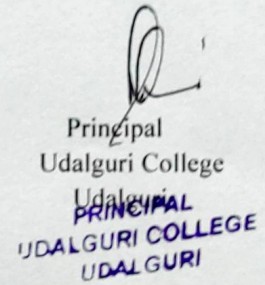 Principal
Udalguri College
Udalguri
PRINCIPAL
UDALGURI COLLEGE
UDALGURI